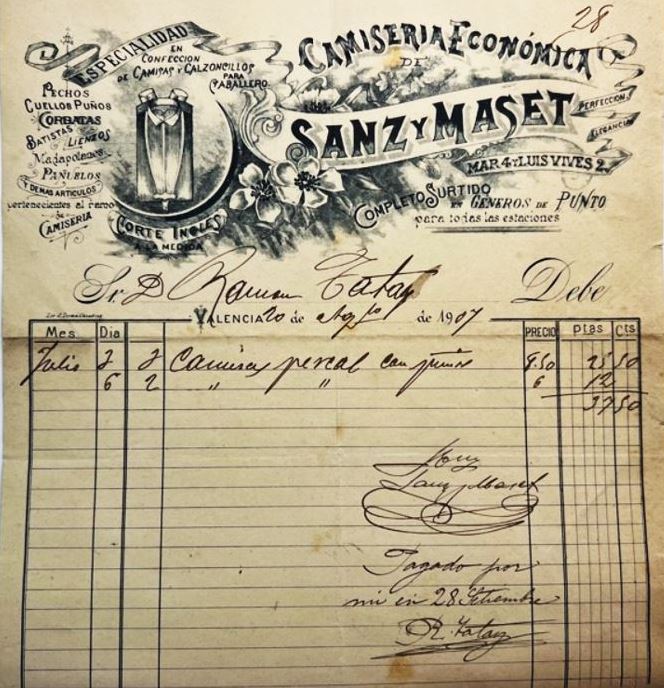 28
ESPECIALIDAD
EN
CONFECCIÓN
DE CAMISAS Y CALZONCILLOS
PARA
CABALLERO.
PECHOS
CUELLOS PUÑOS
CORBATAS
BATISTAS LIENZOS
Madapolanes
PAÑUELOS
Y DEMAS ARTICULOS
pertenecientes al ramo
de
CAMISERIA
CORTE INGLES
A LA MEDIDA
CAMISERIA ECONÓMICA
DE
SANZ Y MASET
PERFECCION
ELEGANCIA
MAR 4 Y LUIS VIVES 2
COMPLETO SURTIDO
EN GÉNEROS DE PUNTO
para todas las estaciones
Sr. D. Ramon Tatay Debe
VALENCIA 20 de Ag.to de 1907
Mes Dia PRECIO ptas Cts
Julio 2 Camisas percal con puños
6 2 " " 6 12
37 50
Sanz y Maset
Pagado por
mi en 28 Setiembre
R. Tatay